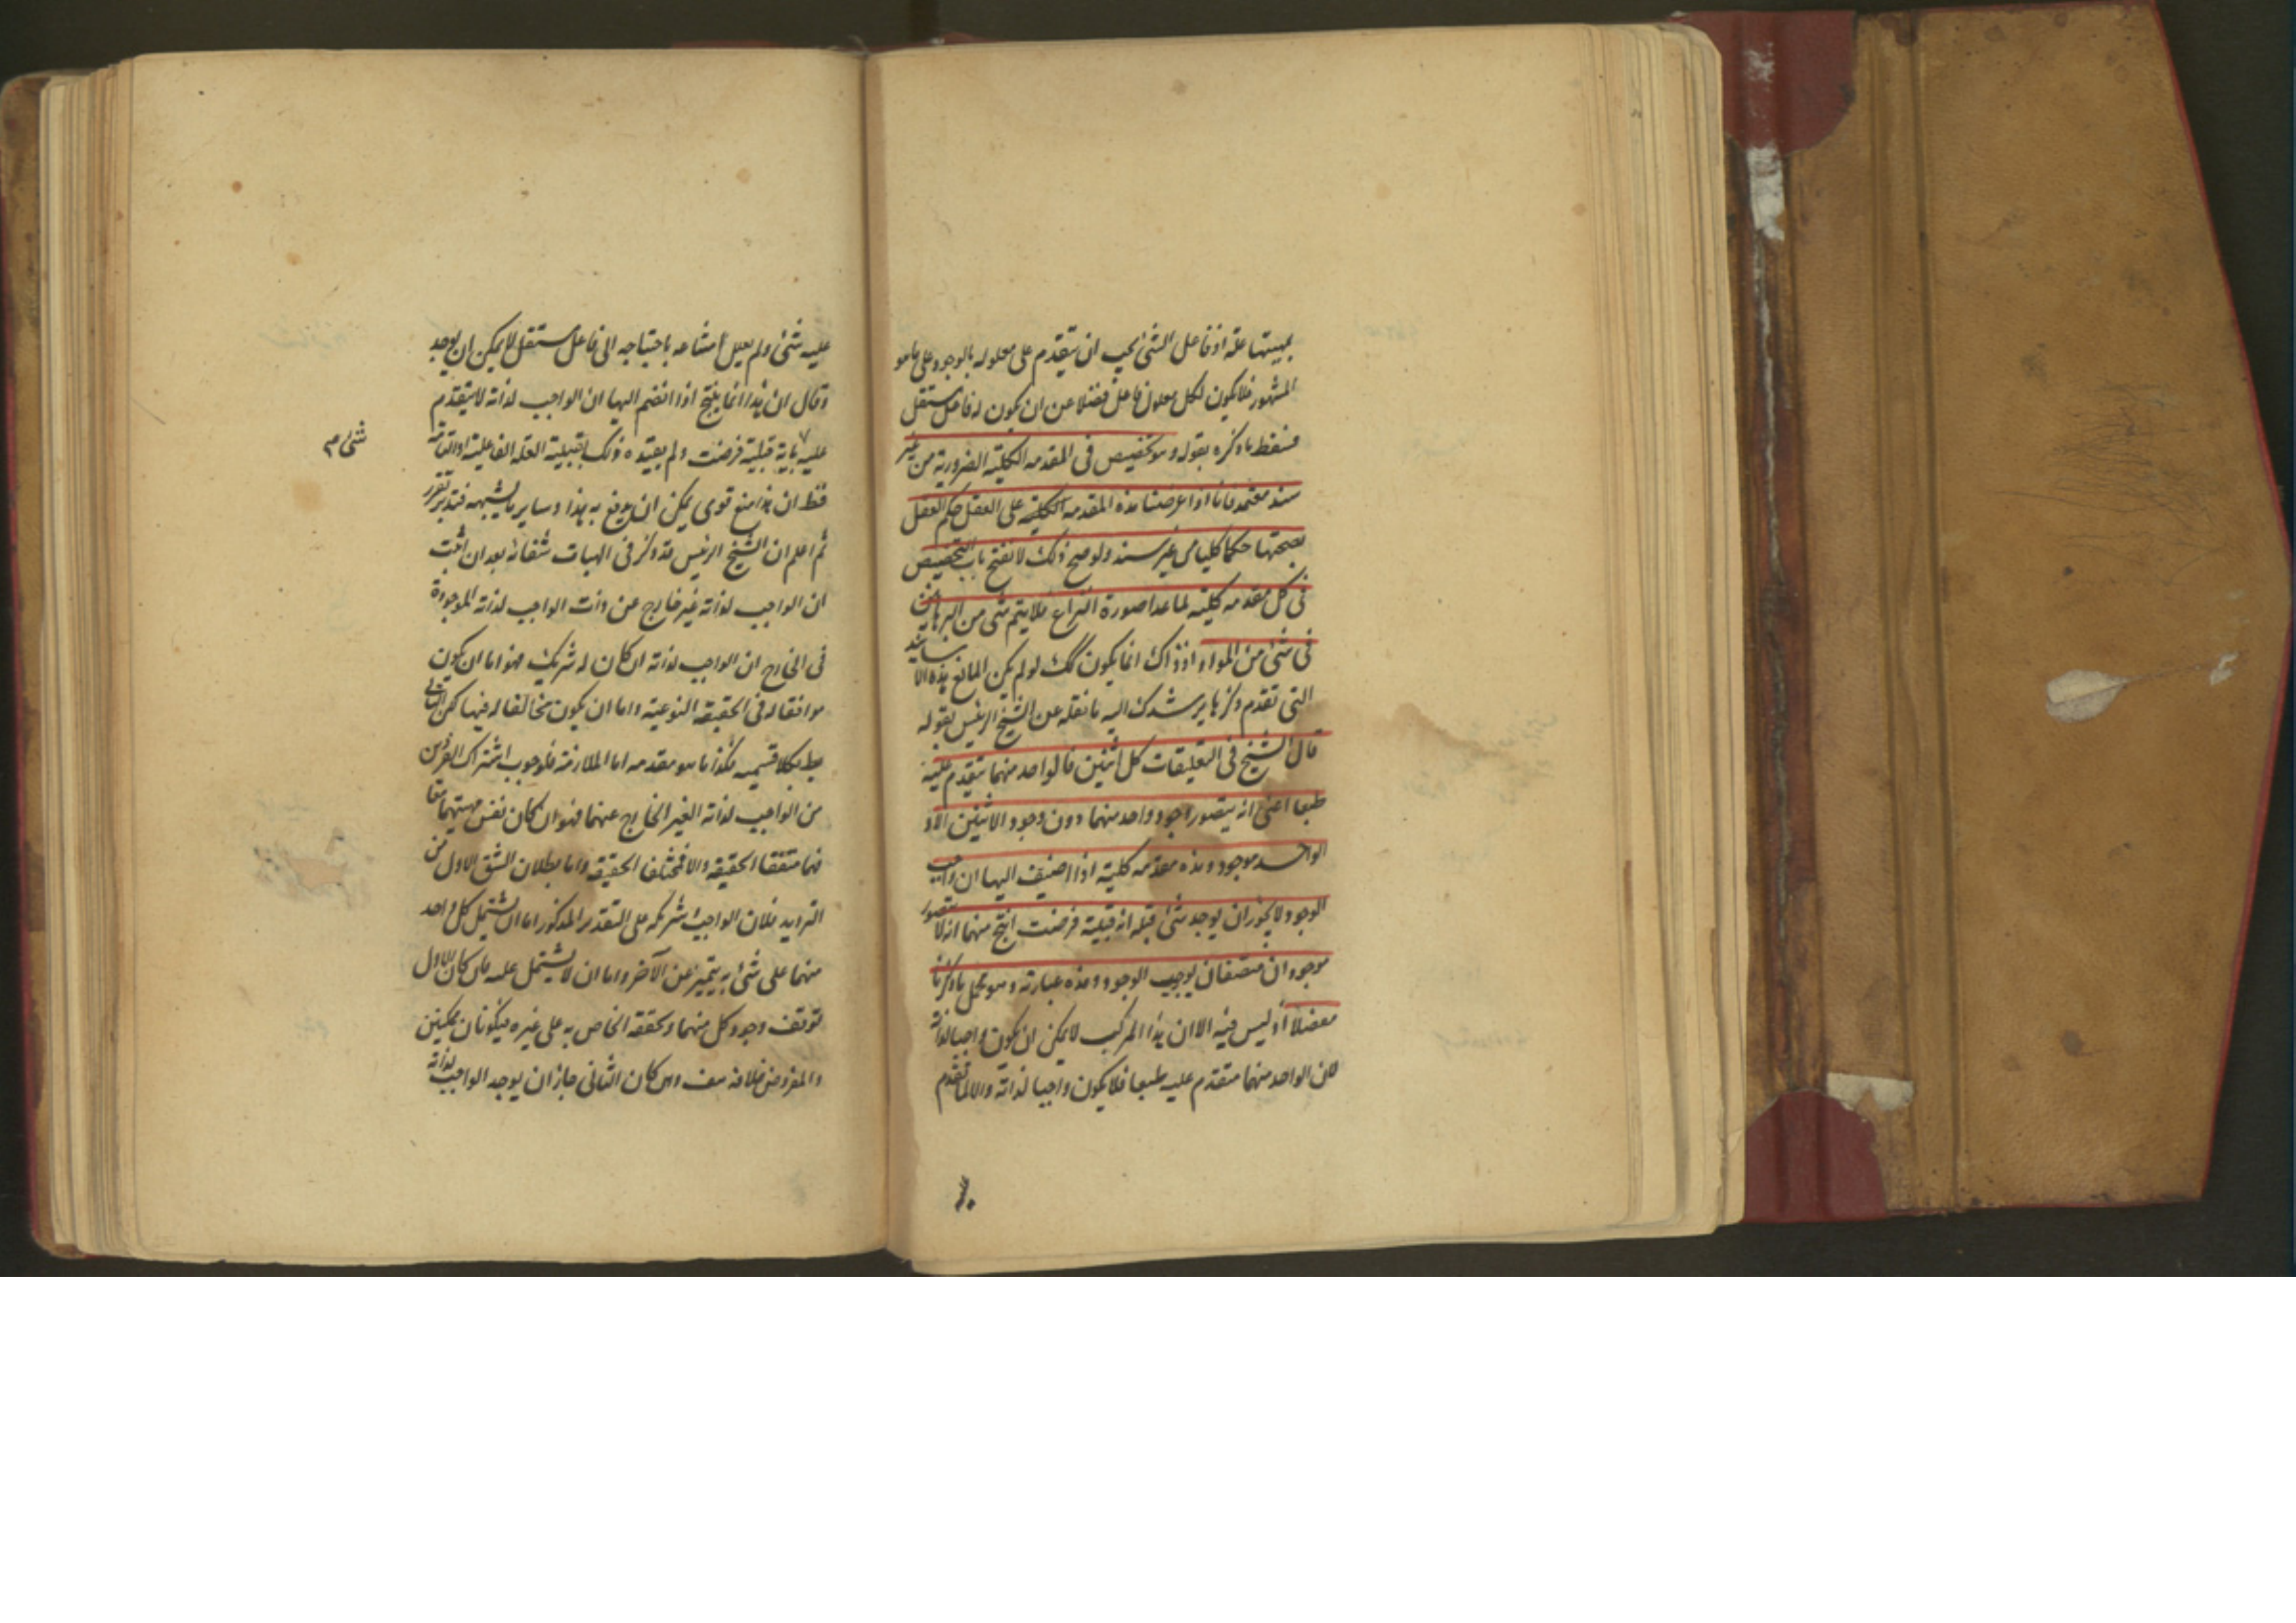 بمهيتها علة اذ فاعل الشئ يجب ان يتقدم على معلوله بالوجود على ما هو
المشهور فلا يكون لكل معلول فاعل فضلا عن ان يكون له فاعل مستقل
فسقط ما ذكره بقوله وهو تخصيص فى المقدمه الكليه الضرورية من غير
سند معتمد فانا اذا عرضنا هذه المقدمه الكلية على العقل حكم العقل
بصحتها حكما كليا من غير سند ولو صح ذلك لانفتح باب التخصيص
فى كل مقدمه كليه لما عدا صورة النزاع فلا يتم شئ من البراهين
فى شئ من المواد اذ ذاك انما يكون كك لو لم يكن المانع هذه الاسانيد
التى تقدم ذكرها يرشدك اليه ما نقله عن الشيخ الرئيس بقوله
قال الشيخ فى التعليقات كل اثنين فالواحد منهما يتقدم عليه
طبعا اعنى انه يتصور وجود واحد منهما دون وجود الاثنين الا و
الواحد موجود وهذه مقدمه كلية اذا اضيف اليها ان واجب
الوجود لا يجوز ان يوجد شئ قبله اية قبلية فرضت انتج منهما انه لا يتصور
موجودان متصفان بوجوب الوجود وهذه عبارته وهو مجمل ما ذكرنا
مفصلا اذ ليس فيه الا ان هذا المركب لا يمكن ان يكون واجبا لذاته
لان الواحد منهما متقدم عليه طبعا فلا يكون واجبا لذاته والا لما تقدم
عليه شئ ولم يعلل امتناعه باحتياجه الى فاعل مستقل لا يمكن ان يوجد
وقال ان هذا انما ينتج اذا انضم اليها ان الواجب لذاته لا يتقدم
عليه باية قبلية فرضت ولم يقيده ذلك بقبلية العلة الفاعلية او التامة
شئ م
فقط ان هذا منع قوى يمكن ان يدفع به هذا وساير ما يشبهه فتدبر تقرر
ثم اعلم ان الشيخ الرئيس قد ذكر فى الهيات شفائه بعد ان اثبت
ان الواجب لذاته غير خارج عن ذات الواجب لذاته الموجودة
فى الخارج ان الواجب لذاته ان كان له شريك فهو اما ان يكون
موافقا له فى الحقيقة النوعية واما ان يكون مخالفا له فيها لكن التالى
بط بكلا قسميه فكذا ما هو مقدمه اما الملازمة فلوجوب اشتراك الفردين
من الواجب لذاته الغير الخارج عنهما فهو ان كان نفس مهيتهما معا
فهما متفقا الحقيقة والا فمختلفا الحقيقة واما بطلان الشق الاول من
الترديد فلان الواجب وشريكه على التقدير المذكور اما ان يشتمل كل واحد
منهما على شئ به يتميز عن الآخر واما ان لا يشتمل عليه فان كان الاول
توقف وجود كل منهما وتحققه الخاص به على غيره فيكونان ممكنين
والمفروض خلافه هف وان كان الثانى جاز ان يوجد الواجب لذاته